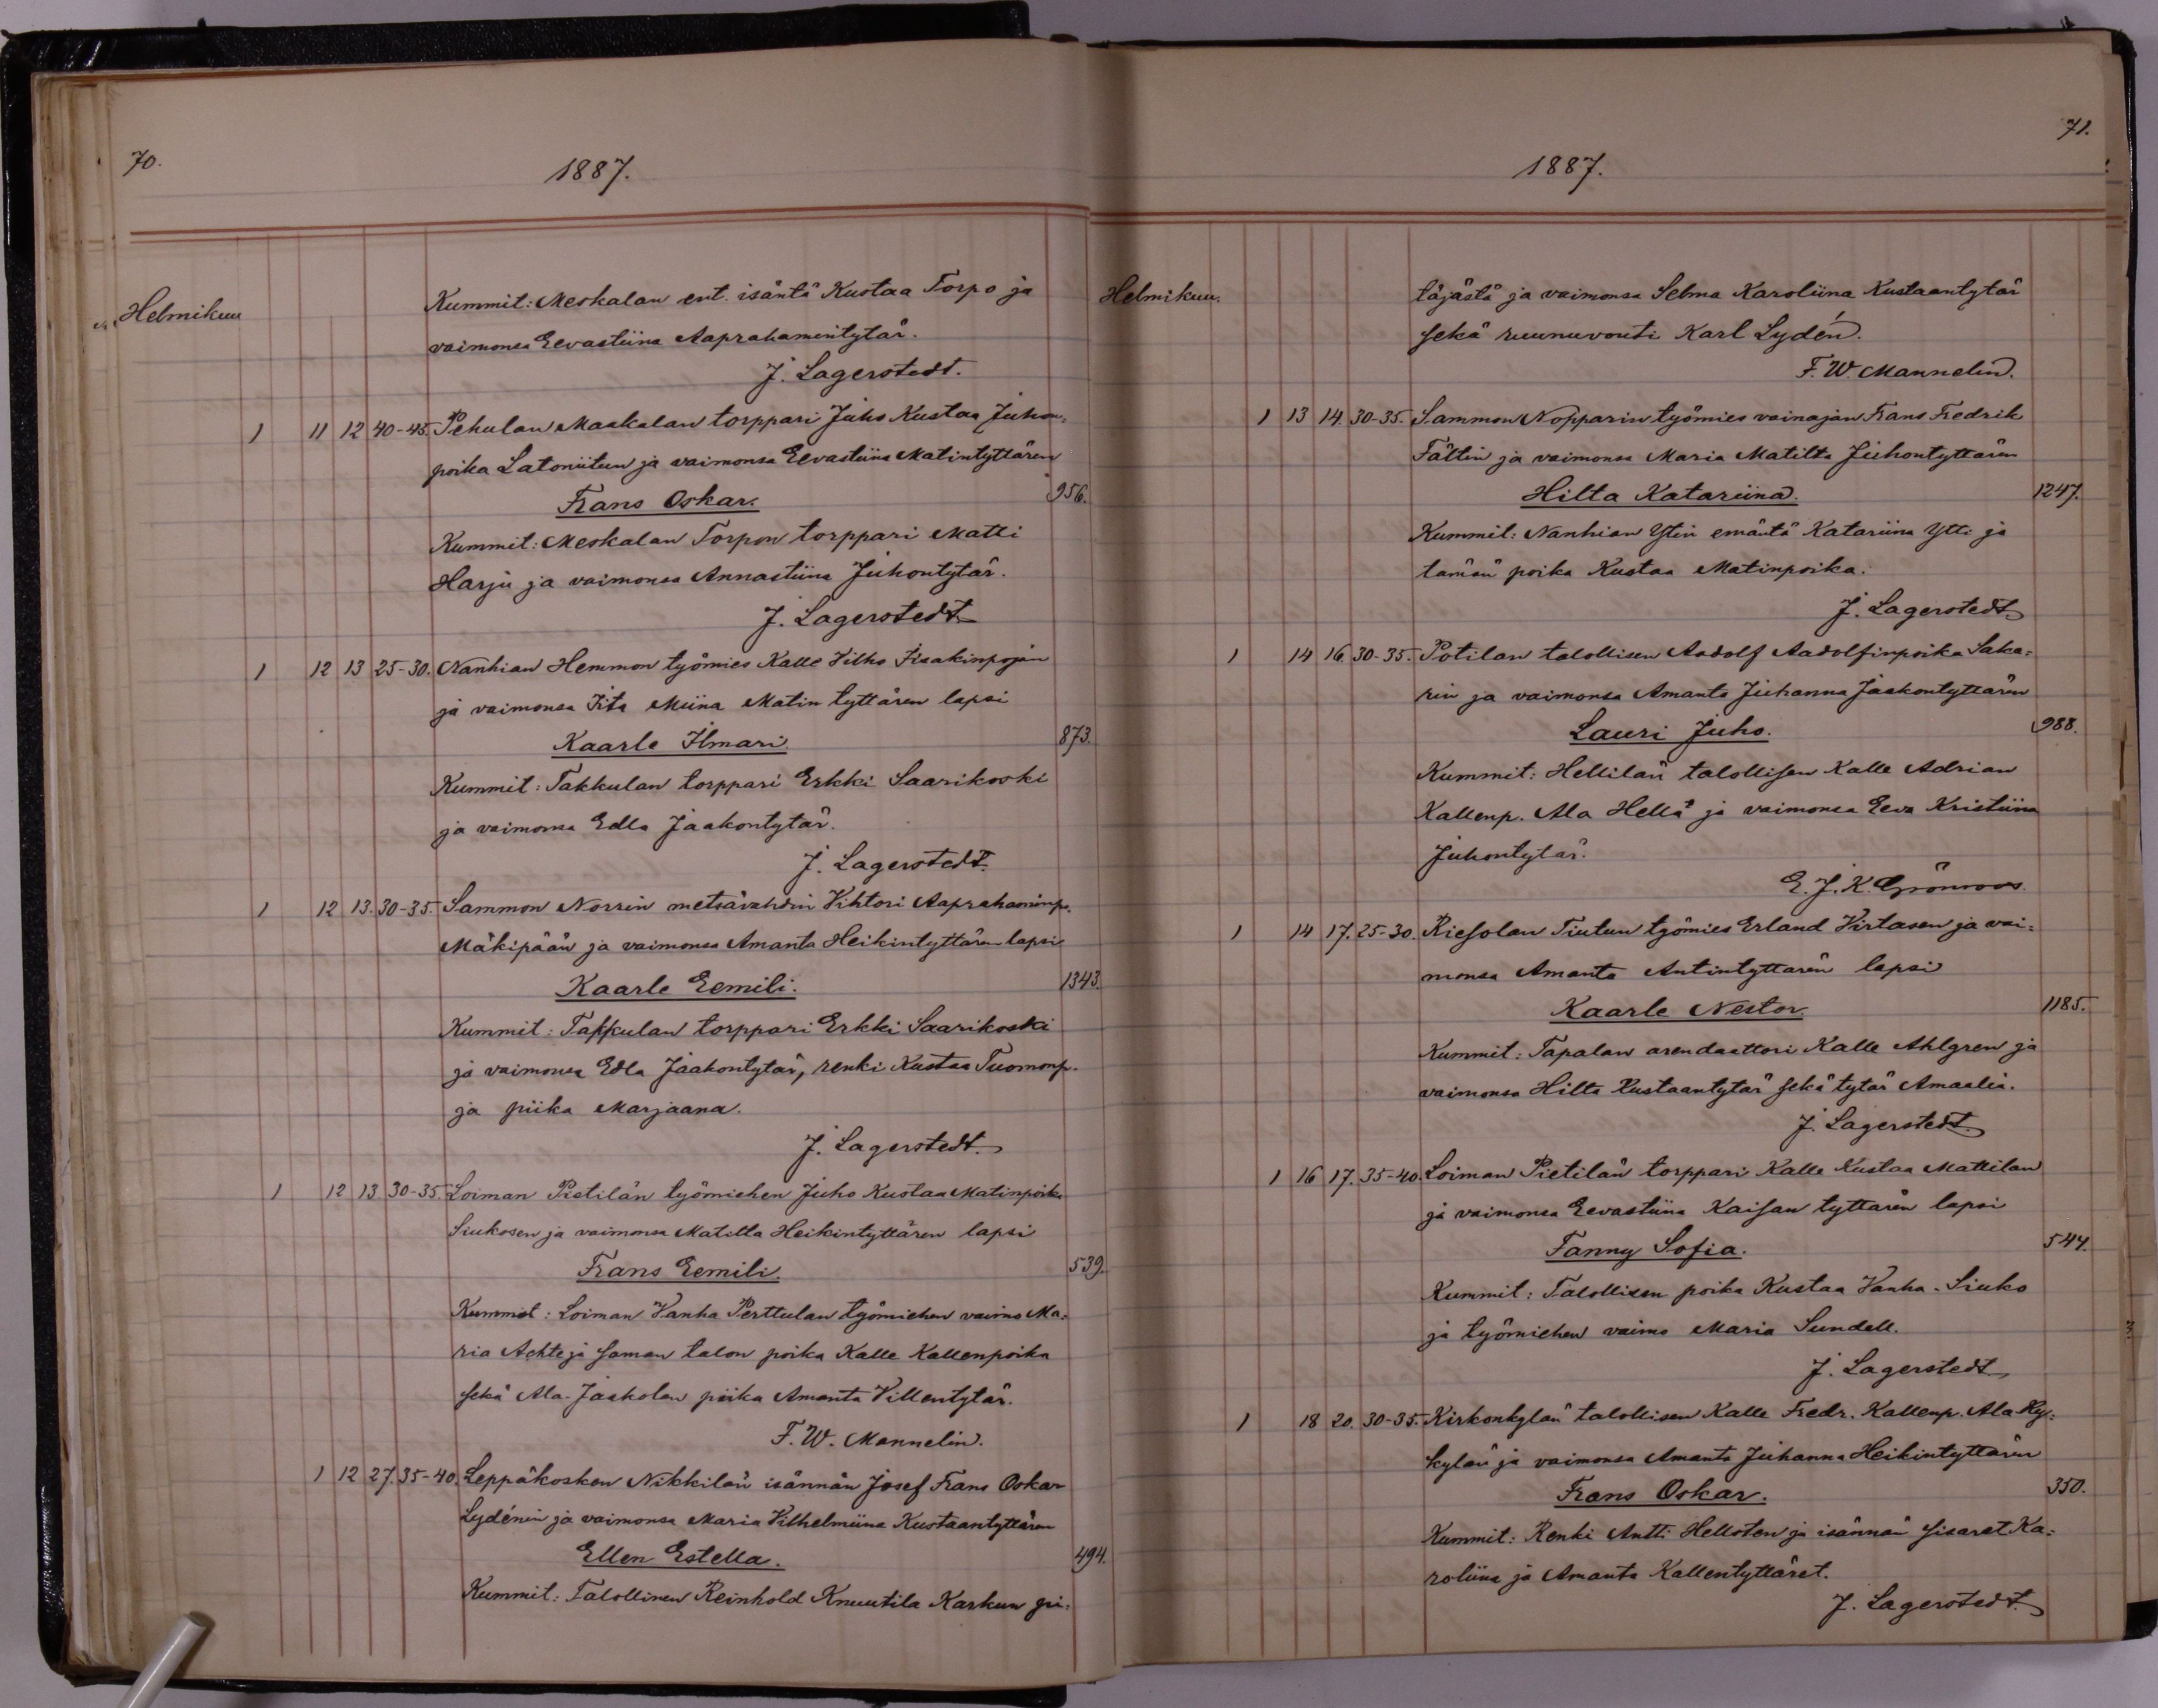 70.
1887.
Helmikuu
Kummit: Meskalan ent. isäntä Kustaa Torpo ja
vaimonsa Eevastiina Aaprahamintytär.
J. Lagerstedt.
1 11 12 40-45. Pehulan Maakalan torppari Juho Kustaa Juhon-
poika Latoniitun ja vaimonsa Eevastiina Matintyttären
Frans Oskar. 956.
Kummit: Meskalan Torpon torppari Matti
Harju ja vaimonsa Annastiina Juhontytär.
J. Lagerstedt
1 12 13 25-30. Nanhian Hemmon työmies Kalle Vilho Iisakinpojan
ja vaimonsa Iita Miina Matin tyttären lapsi
Kaarle Ilmari. 873.
Kummit: Takkulan torppari Erkki Saarikoski
ja vaimonsa Edla Jaakontytär.
J. Lagerstedt.
1 12 13. 30-35. Sammon Norrin metsävahdin Vihtori Aaprahaminp.
Mäkipään ja vaimonsa Amanta Heikintyttären lapsi
Kaarle Eemili. 1343.
Kummit: Takkulan torppari Erkki Saarikoski
ja vaimonsa Edla Jaakontytär, renki Kustaa Tuomonp.
ja piika Marjaana.
J. Lagerstedt.
1 12 13 30-35. Loiman Pietilän työmiehen Juho Kustaa Matinpoika
Siukosen ja vaimonsa Matilta Heikintyttären lapsi
Frans Eemili. 539.
Kummit: Loiman Vanha Perttulan työmiehen vaimo Ma-
ria Achte ja saman talon poika Kalle Kallenpoika
sekä Ala-Jaakolan piika Amanta Villentytär.
F. W. Mannelin.
1 12 27. 35-40. Leppäkosken Nikkilän isännän Josef Frans Oskar
Lydénin ja vaimonsa Maria Vilhelmiina Kustaantyttären
Ellen Estella. 494.
Kummit: Talollinen Reinhold Knuutila Karkun pi-
71.
1887.
Helmikuu.
täjästä ja vaimonsa Selma Karoliina Kustaantytär
sekä ruunuvouti Karl Lydén.
F. W. Mannelin.
1 13 14. 30-35. Sammon Nopparin työmies vainajan Frans Fredrik
Fältin ja vaimonsa Maria Matilta Juhontyttären
Hilta Katariina. 1247.
Kummit: Nanhian Ytin emäntä Katariina Ytti ja
tämän poika Kustaa Matinpoika.
J. Lagerstedt
1 14 16. 30-35. Potilan talollisen Aadolf Aadolfinpoika Saka-
rin ja vaimonsa Amanta Juhanna Jaakontyttären
Lauri Juho. 988.
Kummit: Hellilän talollisen Kalle Adrian
Kallenp. Ala Hellä ja vaimonsa Eeva Kristiina
Juhontytär.
E. J. K. Grönroos.
1 14 17. 25-30. Riesolan Tiutun työmies Erland Virtasen ja vai-
monsa Amanta Antintyttären lapsi
Kaarle Nestor. 1185.
Kummit: Tapalan arendaattori Kalle Ahlgren ja
vaimonsa Hilta Kustaantytär sekä tytär Amaalia.
J. Lagerstedt.
1 16 17. 35-40. Loiman Pietilän torppari Kalle Kustaa Mattilan
ja vaimonsa Eevastiina Kaisan tyttären lapsi
Fanny Sofia. 544.
Kummit: Talollisen poika Kustaa Vanha-Siuko
ja työmiehen vaimo Maria Sundell.
J. Lagerstedt
1 18 20. 30-35. Kirkonkylän talollisen Kalle Fredr. Kallenp. Ala Ky-
kylän ja vaimonsa Amanta Juhanna Heikintyttären
Frans Oskar. 350.
Kummit: Renki Antti Hellsten ja isännän sisaret Ka-
roliina ja Amanta Kallentyttäret.
J. Lagerstedt.